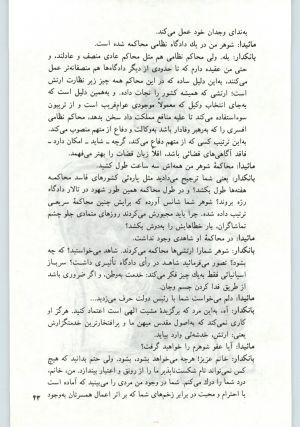 به‌ندای وجدان خود عمل می‌کند.
مانیدا: شوهر من در یك دادگاه نظامی محاکمه شده است.
بانکدار: بله. ولی محاکم نظامی هم مثل محاکم عادی منصف و عادلند، و
حتی من عقیده دارم که تا حدودی از دیگر دادگاه‌ها هم منصفانه‌تر عمل
می‌کنند. به‌این دلیل ساده که در این محاکم همه چیز زیر نظارت ارتش
است؛ ارتشی که همیشه کشور را نجات داده. و به‌همین دلیل است که
به‌جای انتخاب وکیل که معمولاً موجودی عوام‌فریب است و از تریبون
استفاده می‌کند تا علیه منافع مملکت داد سخن بدهد، محاکم نظامی
افسری را که به‌رهبر وفادار باشد به‌وکالت و دفاع از متهم منصوب می‌کند.
به‌این ترتیب کسی که از متهم دفاع می‌کند، گرچه ـ شاید ـ امکان دارد ـ
فاقد آگاهی‌های قضائی باشد، اقلاً زبان قضات را بهتر می‌فهمد.
مانیدا: محاکمهٔ شوهر من همه‌اش سه ساعت طول کشید.
بانکدار: یعنی شما ترجیح می‌دادید مثل پاره‌ئی کشورهای فاسد محاکمه
هفته‌ها طول بکشد؟ و در طول محاکمه همین طور شهود در تالار دادگاه
رژه بروند؟ شوهر شما شانس آورده که برایش چنین محاکمهٔ سریعی
ترتیب داده شده. چرا باید مجبورش می‌کردند روزهای متمادی جلو چشم
تماشاگران، بار خطاهایش را به‌دوش بکشد؟
مانیدا: در محاکمهٔ او شاهدی وجود نداشت.
بانکدار: شوهر شمارا ارتشی‌ها محاکمه می‌کردند. شاهد می‌خواستید! که چه
بشود؟ تصور می‌فرمائید شاهد در رأی دادگاه تأثیری داشت؟ سرباز
اسپانیائی فقط به‌یك چیز فکر می‌کند: خدمت به‌وطن، و اگر ضروری باشد
از طریق فدا کردن جسم وجان.
مانیدا: دلم می‌خواست شما با رئیس دولت حرف می‌زدید...
بانکدار: آه، به‌این مرد که برگزیدهٔ مشیت الهی است اعتماد کنید. هرگز او
کاری نمی‌کند که به‌اصول مقدس میهن ما و پرافتخارترین خدمتگزارش
یعنی: ارتش، خدشه‌ئی وارد بیاید.
مانیدا: آیا عفو شوهرم را خواهید گرفت؟
بانکدار: خانم عزیز! هرچه می‌خواهد بشود، بشود. ولی حتم بدانید که هیچ
کس نمی‌تواند نام شکست‌ناپذیر ما را از رونق و اعتبار بیندازد. من، خانم،
درد شما را درك می‌کنم. شما در وجود من مردی را می‌بینید که آماده است
با احترام و محبت در برابر زخم‌های شما که بر اثر اعمال همسرتان به‌وجود
۴۳